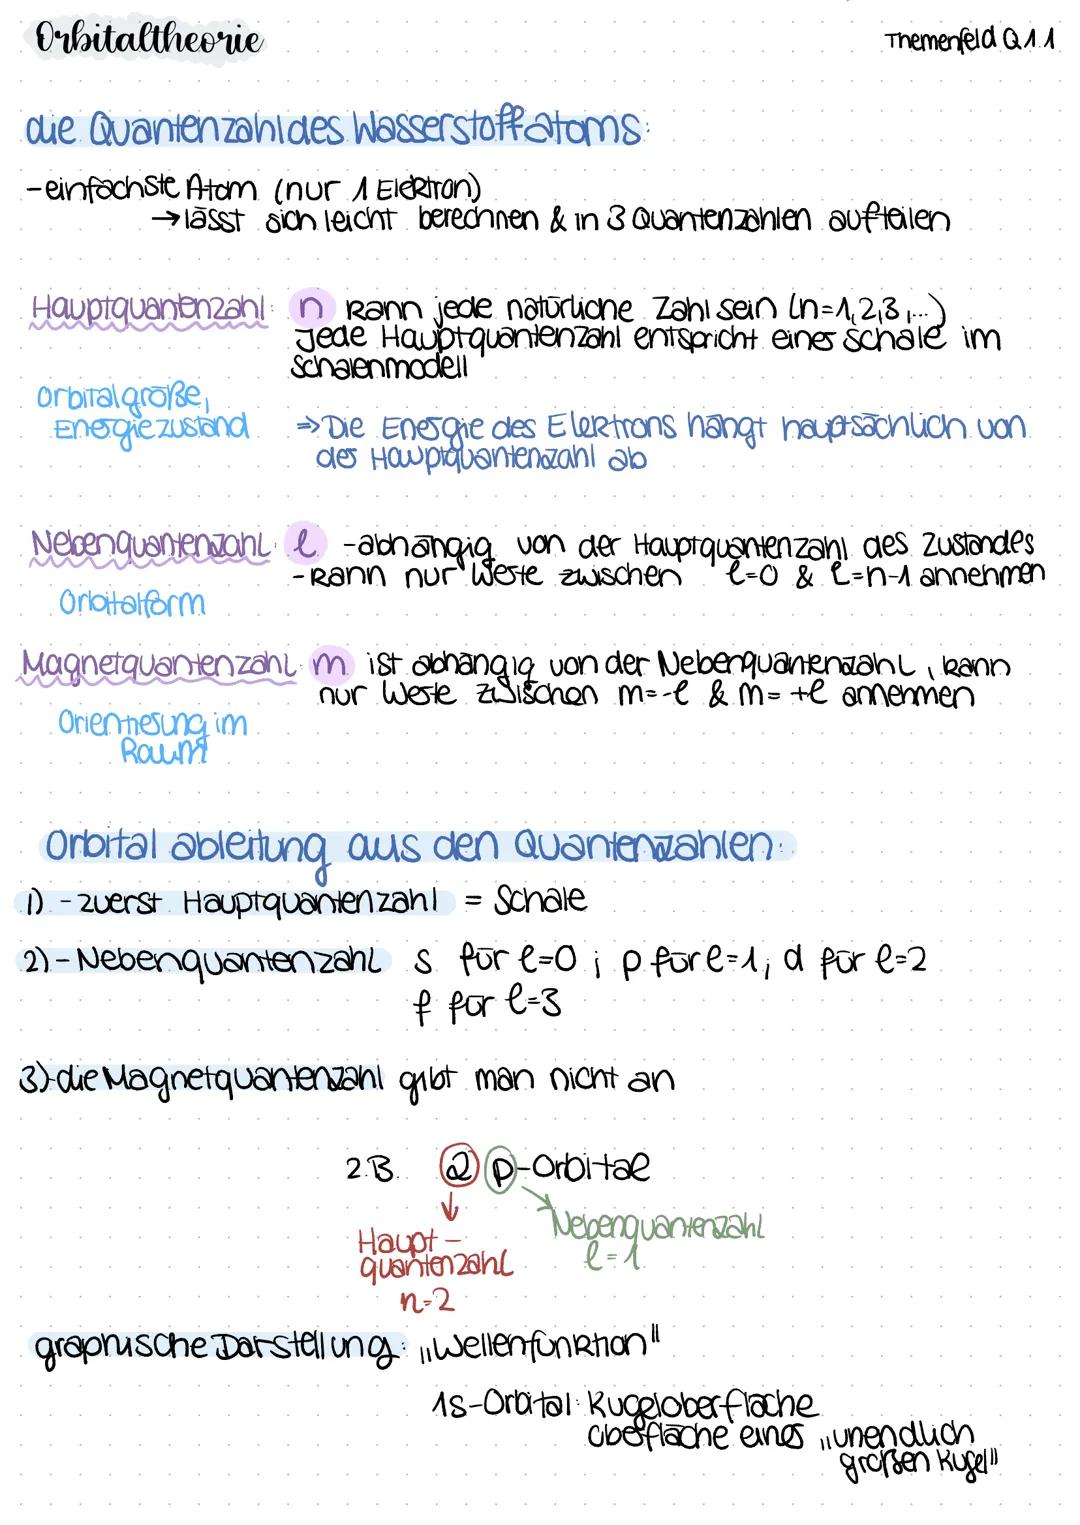 Orbitaltheorie
Themenfeld Q1.1
die Quantenzahl des Wasserstoffatoms:
- einfachste Atom (nur 1 Elektron)
→ lässt sich leicht berechnen & in 3 Quantenzahlen aufteilen
Hauptquantenzahl: n kann jede natürliche Zahl sein (n=1,2,3,...)
Jede Hauptquantenzahl entspricht einer Schale im
Schalenmodell
Orbitalgröße,
Energiezustand
⇒ Die Energie des Elektrons hängt hauptsächlich von
der Hauptquantenzahl ab
Nebenquantenzahl: l - abhängig von der Hauptquantenzahl des Zustandes
- kann nur Werte zwischen l=0 & l=n-1 annehmen
Orbitalform
Magnetquantenzahl: m ist abhängig von der Nebenquantenzahl, kann
nur Werte zwischen m=-l & m=+l annehmen
Orientierung im
Raum
Orbital ableitung aus den Quantenzahlen:
1) - zuerst Hauptquantenzahl = Schale
2) - Nebenquantenzahl s für l=0 ; p für l=1, d für l=2
f für l=3
3) - die Magnetquantenzahl gibt man nicht an
z.B. 2 p-Orbital
Haupt-
quantenzahl
n=2
Nebenquantenzahl
l=1
graphische Darstellung: „Wellenfunktion"
1s-Orbital: Kugeloberfläche
oberfläche eines „unendlich
großen Kugel"